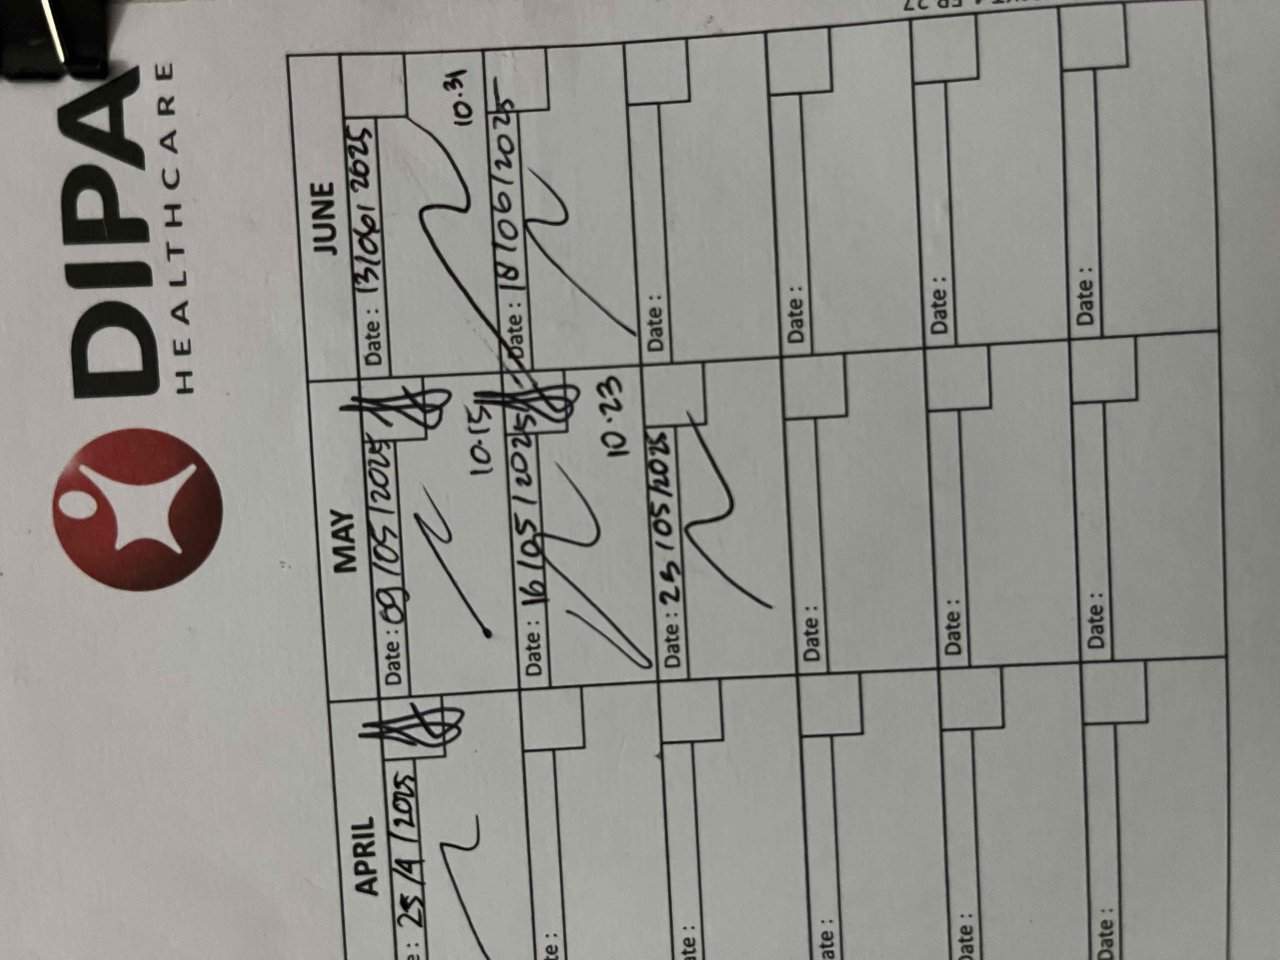 DIPA
HEALTHCARE
APRIL MAY JUNE
25/4/2025 Date : 09/05/2025 Date : 13/06/2025
10.15 10.31
Date : 16/05/2025 Date : 18/06/2025
10.23
Date : 23/05/2025 Date :
Date : Date :
Date : Date : Date :
Date : Date : Date :